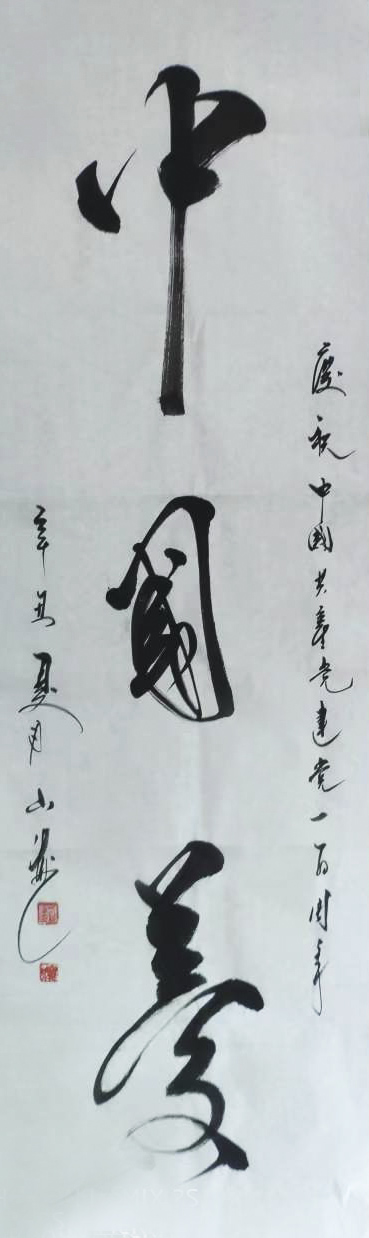 庆祝中國共產党建党一百周年
中國夢
辛丑夏月山